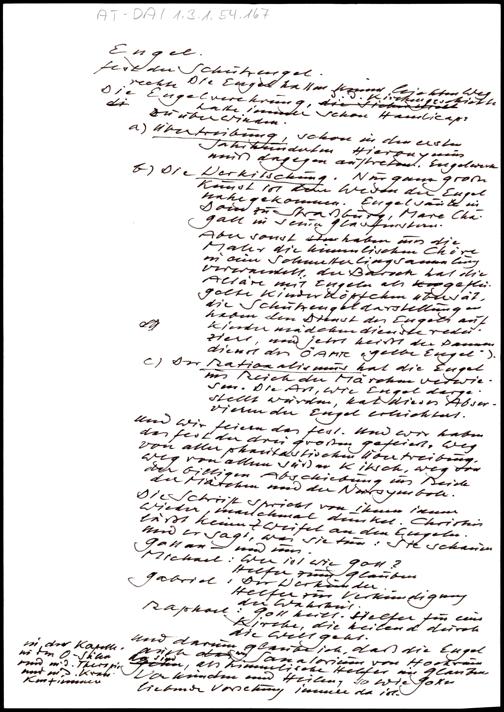 AT-DA/ 1.3.1.54.167
Engel.
Fest der Schutzengel.
rechte Die Engel hatten keinen leichten Weg
Die Engelverehrung, i.d. Kirchengeschichte
hatte immer schon Handicaps
zu überwinden.
a) Übertreibung, schon in den ersten
Jahrhunderten Hieronymus
muß dagegen auftreten. Engelwerk
b) Die Verkitschung. Nur ganz große
Kunst ist dem Wesen der Engel
nahegekommen. Engelsäule im
Dom zu Straßburg, Marc Cha
gall in seinen Glasfenstern.
Aber sonst haben uns die
Maler die himmlischen Chöre
in eine Schmetterlingssammlung
verwandelt, der Barock hat die
Altäre mit Engeln als geflü
gelte Kinderköpfchen übersät,
die Schutzengeldarstellungen
haben den Dienst des Engels auf
Kindermädchendienste redu
ziert, und jetzt heißt der Pannen
dienst des ÖAMTC "gelbe Engel").
c) Der Rationalismus hat die Engel
ins Reich der Märchen verwie
sen. Die Art, wie Engel darge
stellt wurden, hat dieses Abser-
vieren der Engel erleichtert.
Und wir feiern das Fest. Und wir haben
das Fest der drei großen gefeiert. Weg
von aller phantastischen Übertreibung.
Weg von allem süßen Kitsch, weg von
der billigen Abschiebung ins Reich
der Märchen und der Nursymbole.
Die Schrift spricht von ihnen immer
wieder, manchmal dunkel. Christus
läßt keinen Zweifel an den Engeln.
Und er sagt, was sie tun: Sie schauen
Gott an und uns.
Michael: Wer ist wie Gott?
Helfer zum Glauben
Gabriel: Der Verkünder
Helfer zur Verkündigung
der Wahrheit.
Raphael: Gott heilt. Helfer für eine
Kirche, die heilend durch
die Welt geht.
Und darum glaube ich, daß die Engel
auch im Sanatorium von Hochrum
da sind, als himmlische Helfer im Glauben
Verkünden und Heilen, so wie Gottes
liebende Vorsehung immer da ist.
in der Kapelle
und i.d. Therapie
und i.d. Kran
kenzimmer